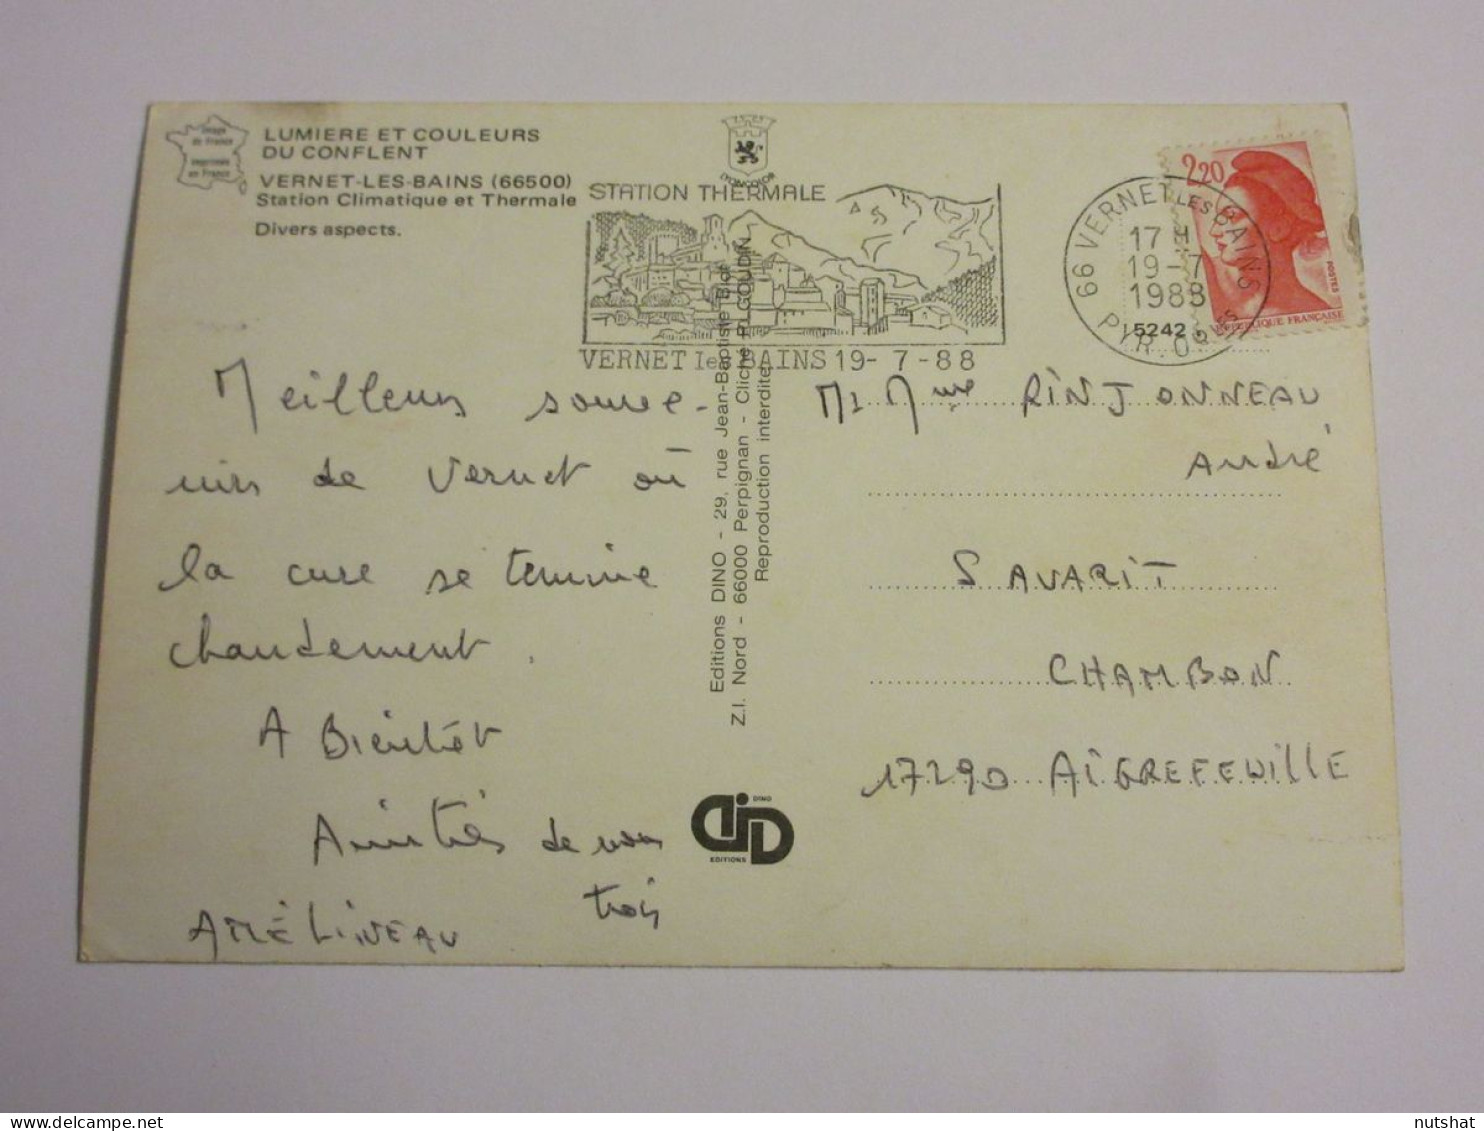 Image
de France
imprimée
en France
LUMIERE ET COULEURS
DU CONFLENT
VERNET-LES-BAINS (66500)
Station Climatique et Thermale
Divers aspects.
LYONCOLOR
STATION THERMALE
VERNET les BAINS 19-7-88
66 VERNET LES BAINS
17 H
19-7
1988
PYR. ORLES
5242
2,20
POSTES
REPUBLIQUE FRANÇAISE
Meilleurs souve-
nirs de Vernet où
la cure se termine
chaudement.
A Bientôt
Amitiés de nous
trois
AMÉLINEAU
Editions DINO - 29, rue Jean-Baptiste Biot
Z.I. Nord - 66000 Perpignan - Cliché P. GOUDIN
Reproduction interdite
DINO
EDITIONS
Mr Mme RINJONNEAU
André
SAVARIT
CHAMBON
17290 AIGREFEUILLE
nutshat